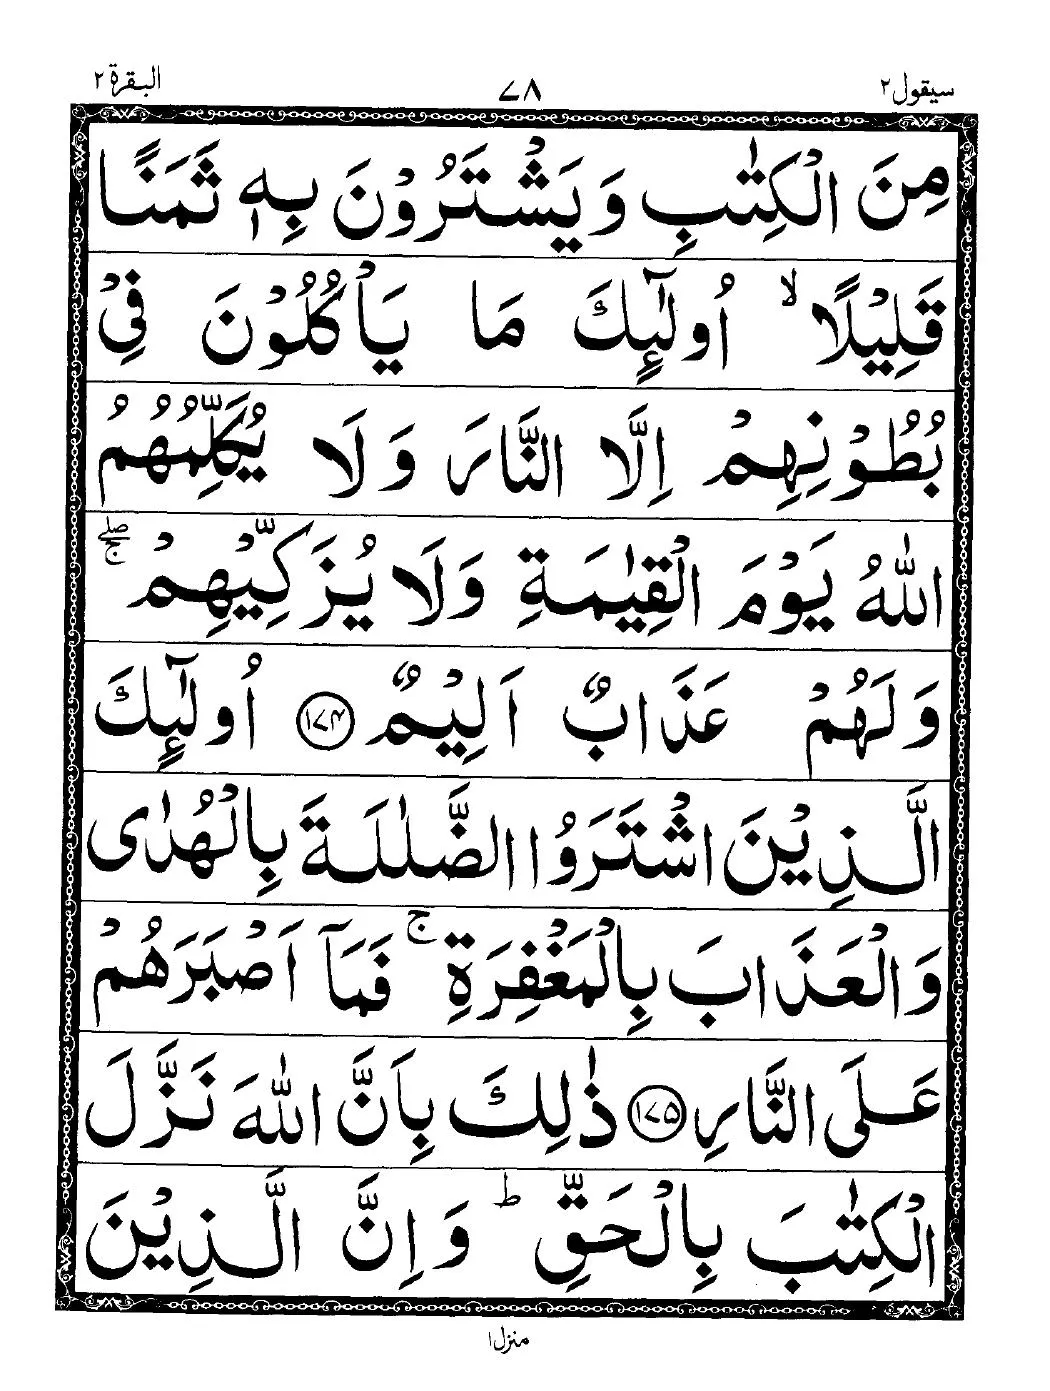 سيقول ٢ ٧٨ البقرة ٢
مِنَ الْكِتٰبِ وَيَشْتَرُوْنَ بِهٖ ثَمَنًا
قَلِيْلًا ۙ اُولٰٓئِكَ مَا يَاْكُلُوْنَ فِيْ
بُطُوْنِهِمْ اِلَّا النَّارَ وَلَا يُكَلِّمُهُمُ
اللّٰهُ يَوْمَ الْقِيٰمَةِ وَلَا يُزَكِّيْهِمْ ۖۚ
وَلَهُمْ عَذَابٌ اَلِيْمٌ ﴿۱۷۴﴾ اُولٰٓئِكَ
الَّذِيْنَ اشْتَرَوُا الضَّلٰلَةَ بِالْهُدٰى
وَالْعَذَابَ بِالْمَغْفِرَةِ ۚ فَمَآ اَصْبَرَهُمْ
عَلَى النَّارِ ﴿۱۷۵﴾ ذٰلِكَ بِاَنَّ اللّٰهَ نَزَّلَ
الْكِتٰبَ بِالْحَقِّ ؕ وَاِنَّ الَّذِيْنَ
منزل ١